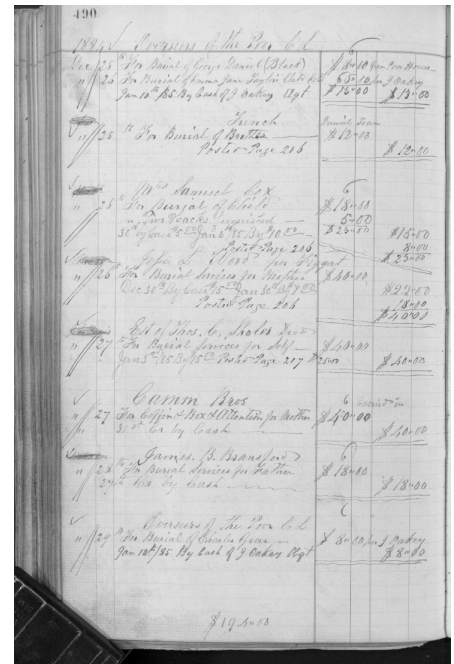 490
1884 Overseers of the Poor Cd
Dec 25 For Burial of George Daniel (Black) $8.10 for Poor House
" 26 For Burial of Emma Jane 65.10 for J Oakey
Jan 10th /85 By Cash of J Oakey Agt $13.00 $13.00
French
" 25 For Burial of Brother $12.00
Posted Page 206 $12.00
Mrs Samuel Cox
" 26 For Burial of Child $18.00
" Four Hacks furnished 5.00
30th by Cash 15.00 Jan 6th 85 By 10.00 $23.00 $15.00
Posted Page 206 8.00
$23.00
John S. Ford per
" 26 For Burial Services for $40.00
Dec 30th By Cash 15.00 Jan 30th By 7.00 $22.00
Posted Page 206 18.00
$40.00
Est of Thos. C. Sholes
" 27 For Burial Services for Self $40.00
Jan 5th /85 By 15.00 Posted Page 207 $25.00 $40.00
Camm Bros
" 27 For Coffin & Box & Attention for Mother $40.00
" 31st Cr by Cash $40.00
James B. Bransford
" 26 For Burial Services for Father $18.00
27 Cr By Cash $18.00
Overseers of The Poor Cd
" 29 For Burial of $8.00 for J Oakey
Jan 10th /85 By Cash of J Oakey Agt $8.00
$194.00